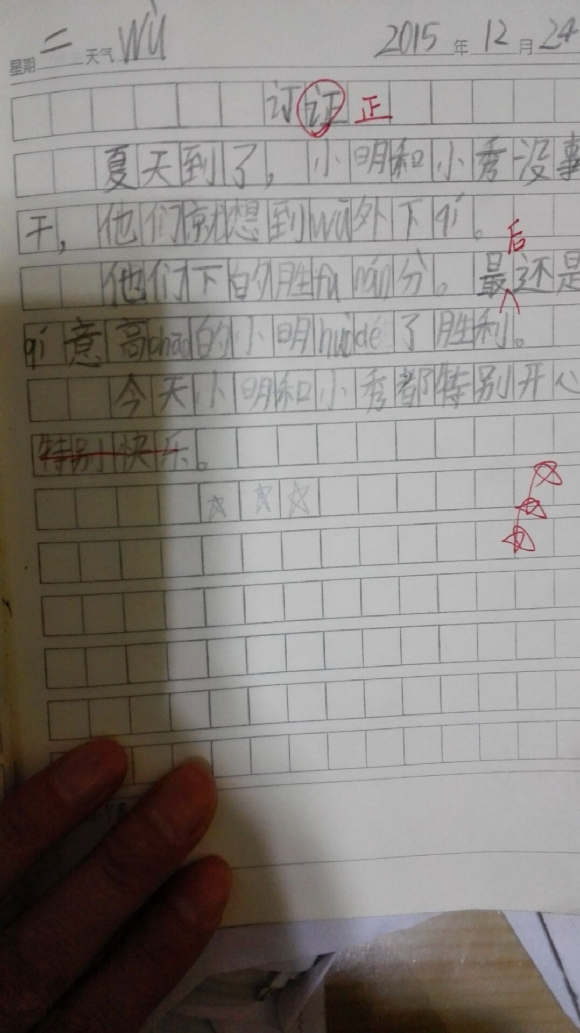 星期 二 天气 wù 2015 年 12 月 24
订证 正
夏天到了，小明和小秀没事
干，他们就想到wū外下qí。
他们下的胜fù nán分。最后还是
qí意高chāo的小明huòdé了胜利。
今天小明和小秀都特别开心
特别快乐。